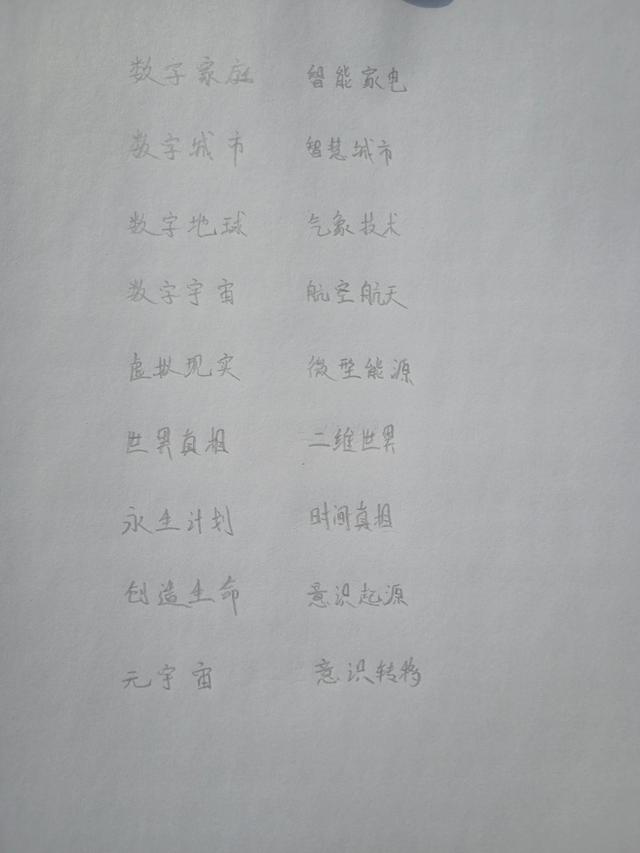 数字家庭 智能家电
数字城市 智慧城市
数字地球 气象技术
数字宇宙 航空航天
虚拟现实 微型能源
世界真相 二维世界
永生计划 时间真相
创造生命 意识起源
元宇宙 意识转移